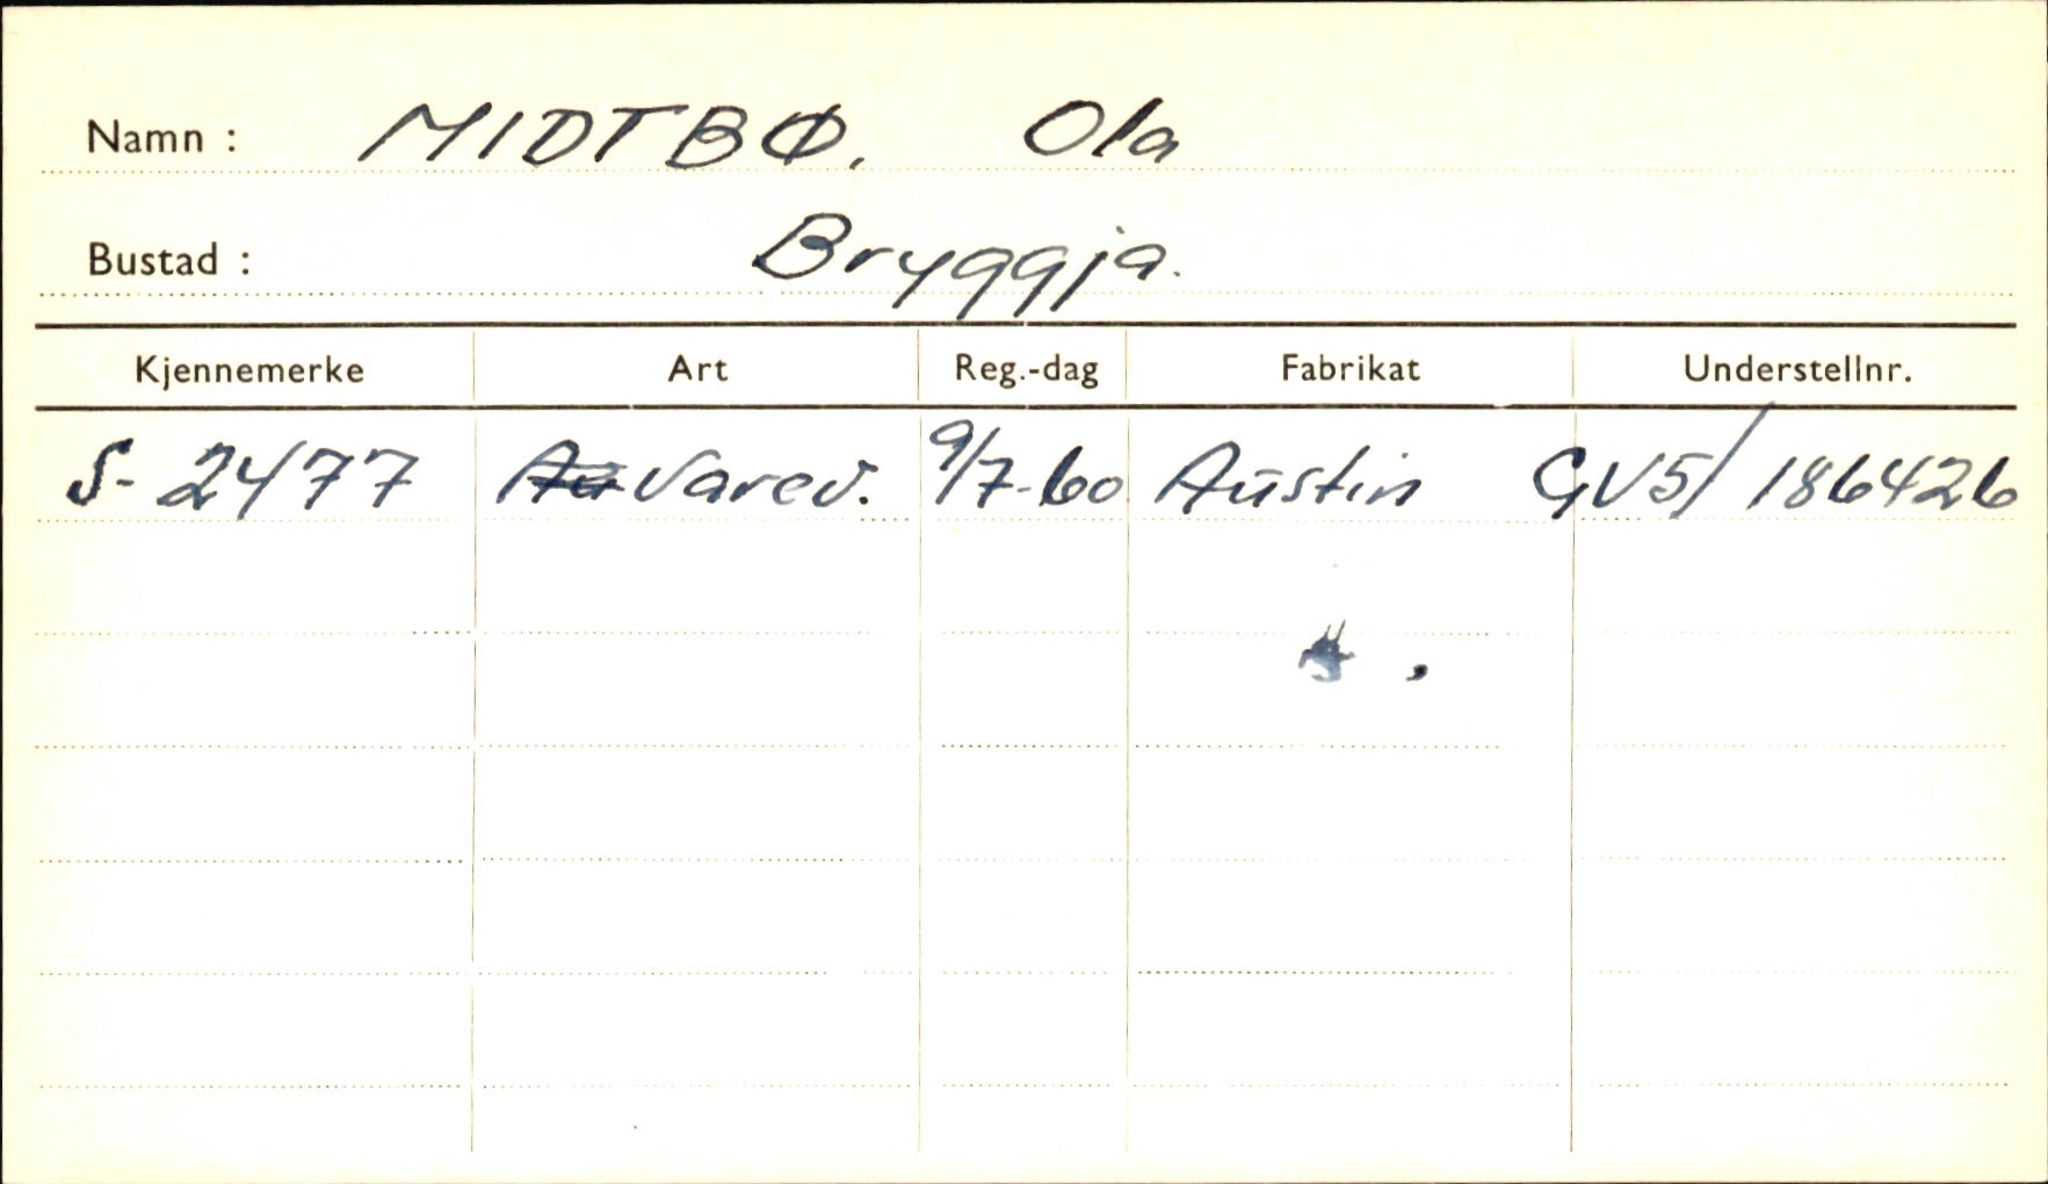 Namn : MIDTBØ, Ola
Bustad : Bryggja.
Kjennemerke Art Reg.-dag Fabrikat Understellnr.
S- 2477 Varev. 9/7-60 Austin GV5/186426